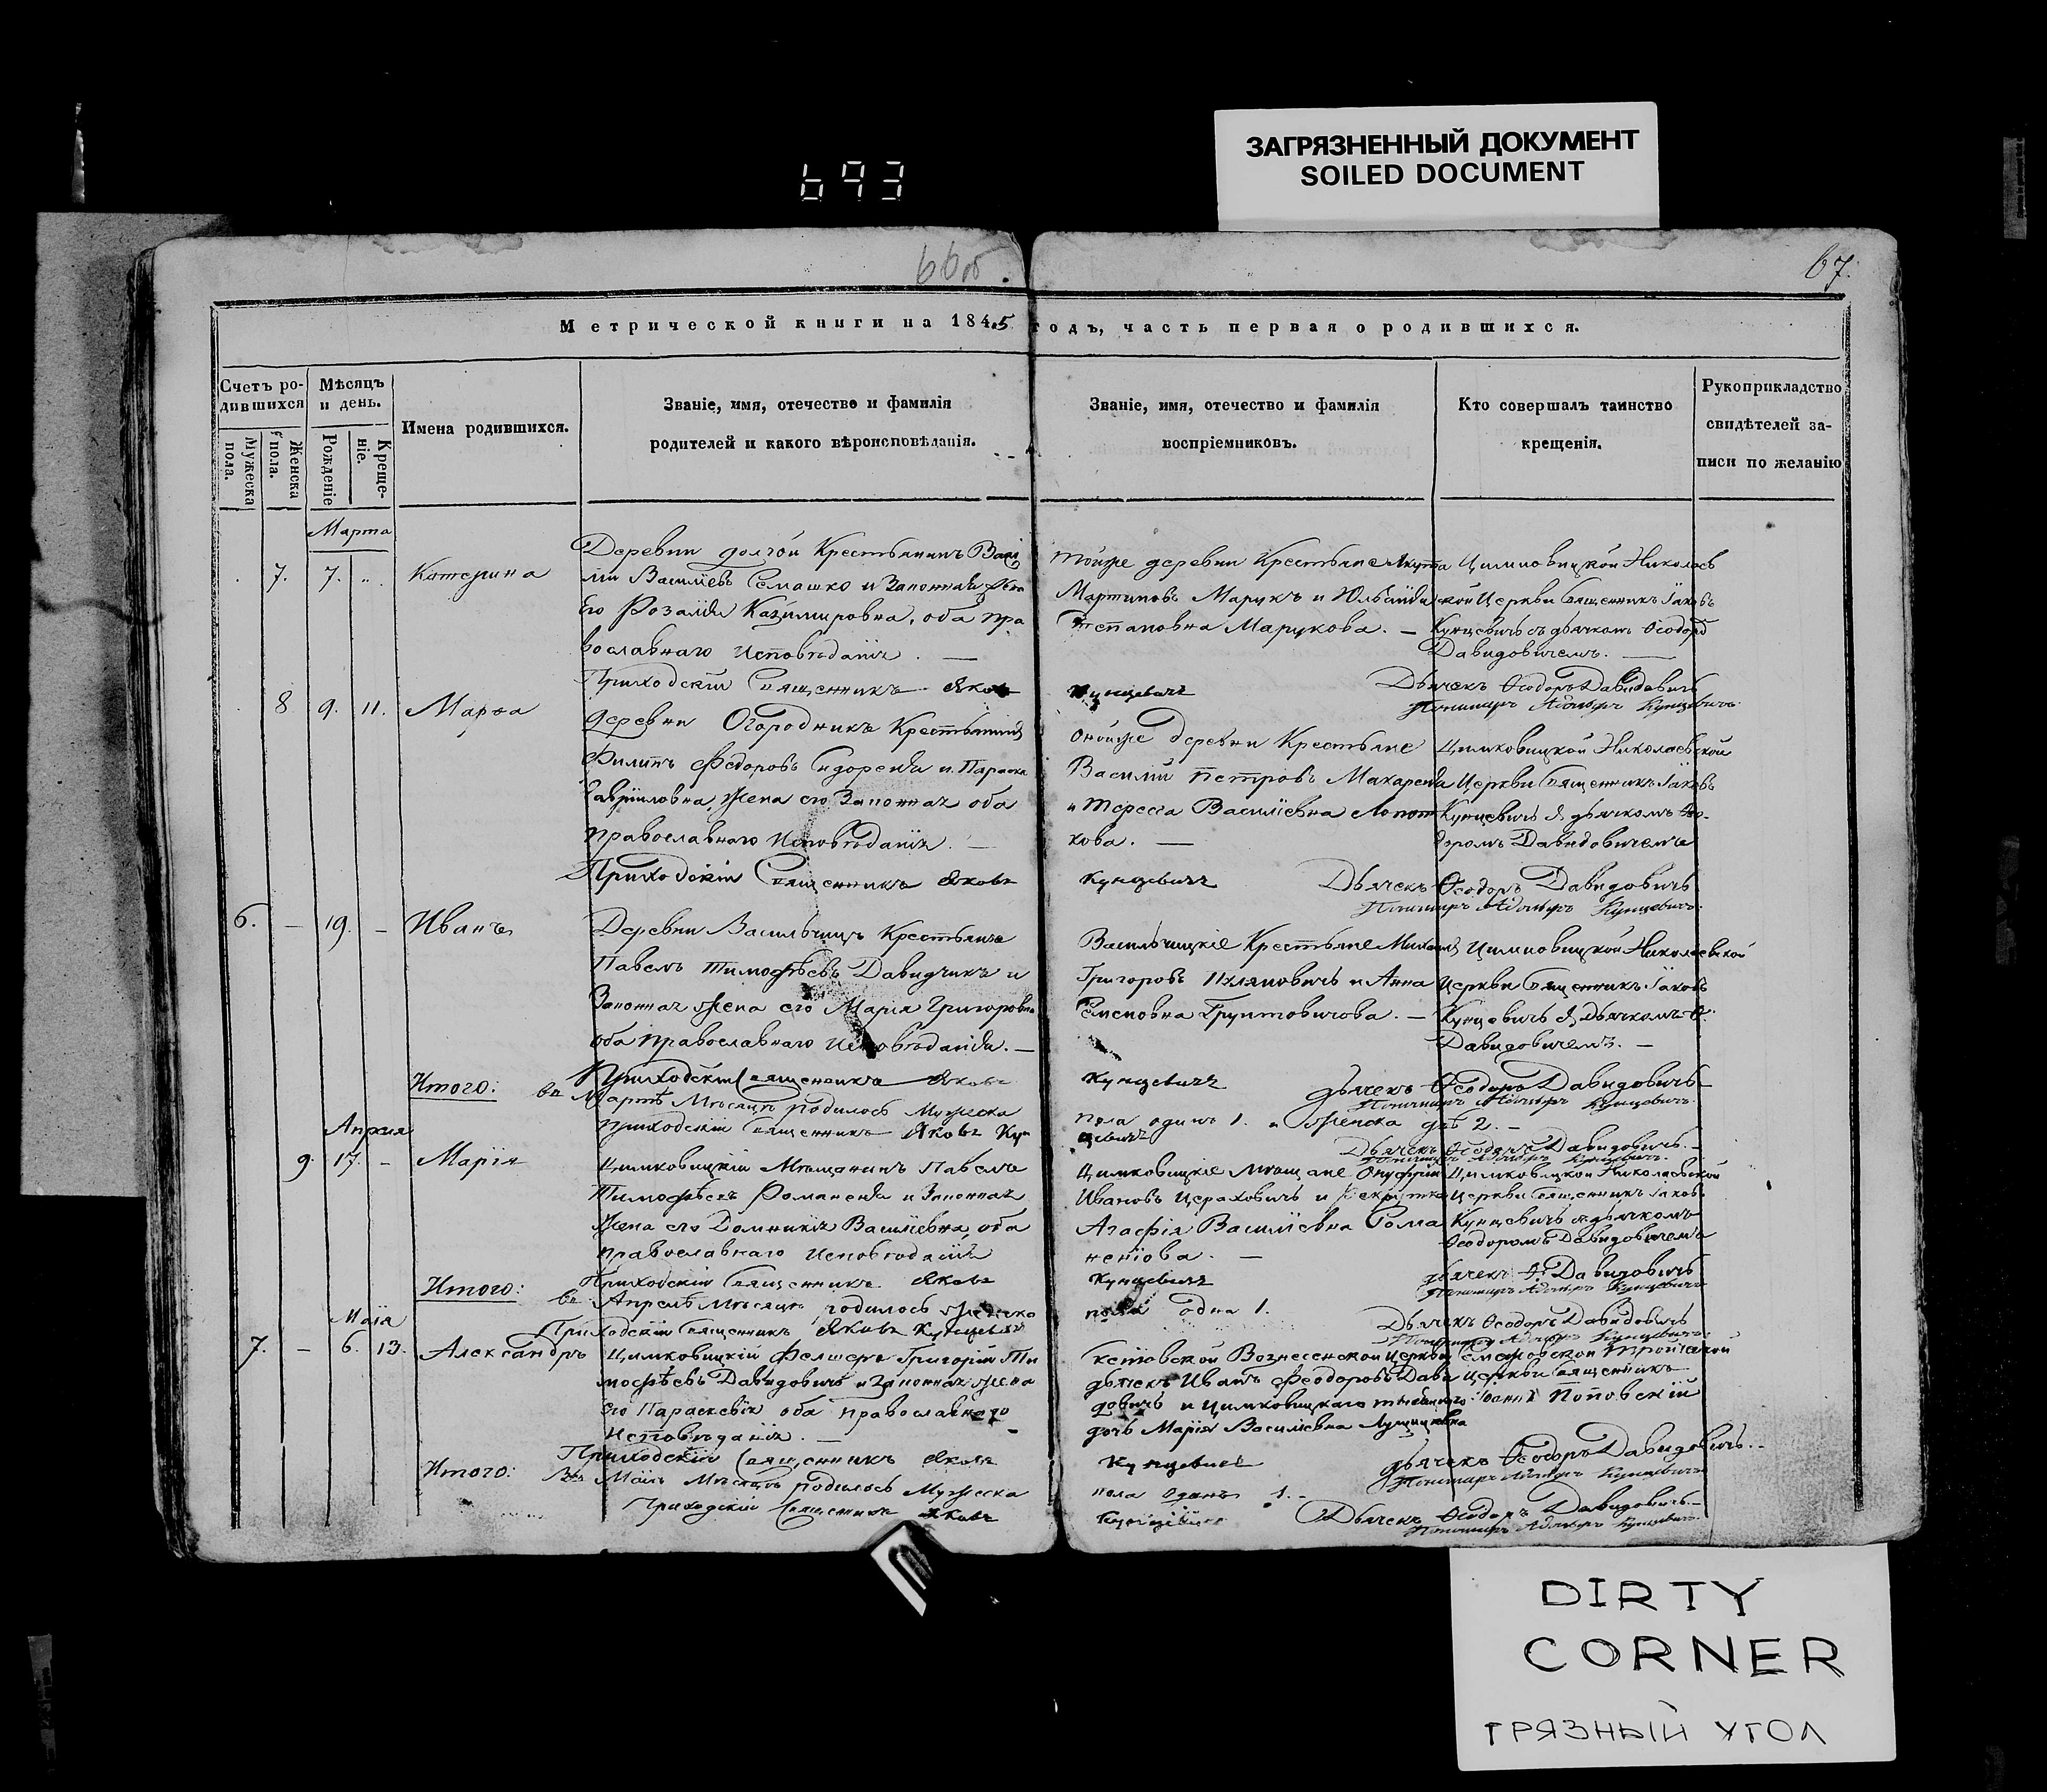 ЗАГРЯЗНЕННЫЙ ДОКУМЕНТ
SOILED DOCUMENT
693
66об.
67.
Метрической книги на 1845 годъ, часть первая о родившихся.
Счетъ родившихся
Мужеска пола.
Женска пола.
Мѣсяцъ и день.
Рожденіе
Крещеніе.
Имена родившихся.
Званіе, имя, отечество и фамилія
родителей и какого вѣроисповѣданія.
Званіе, имя, отечество и фамилія
воспріемниковъ.
Кто совершалъ таинство
крещенія.
Рукоприкладство
свидѣтелей за-
писи по желанію
Марта
7. 7. „ Катерина
Деревни Долгой Крестьянинъ
Васильевъ Семашко и Законная Жена
Его Розалія Казимировна, оба пра
вославнаго Исповѣданія. —
тойже деревни Крестьяне
Мартиновъ Марукъ и Юльянія
Степановна Марукова. —
Цимковицкой Николаев
ской Церкви Священникъ Іаковъ
Кунцевичъ съ дьячкомъ Ѳеодор
Давидовичемъ. —
Приходскій Священникъ Яковъ
Кунцевичъ
Дьячекъ Ѳеодоръ Давидовичъ
Пономарь Адамъ Кунцевичъ.
8 9. 11. Марѳа
деревни Огородникъ Крестьянинъ
Филипъ Федоровъ Сидореня и Параска
Гавріиловна, Жена его Законная оба
Православнаго Исповѣданія. —
онойже деревни Крестьяне
Василій Петровъ Макареня
и Тереса Василіевна Лопот
кова. —
Цимковицкой Николаевской
Церкви Священникъ Іаковъ
Кунцевичъ съ дьячкомъ Ѳео-
доромъ Давидовичемъ
Приходскій Священникъ Яковъ
Кунцевичъ
Дьячекъ Ѳеодоръ Давидовичъ
Пономарь Адамъ Кунцевичъ.
6. — 19. — Иванъ
Деревни Васильчицъ Крестьяне
Павелъ Тимофѣевъ Давидчикъ и
Законная Жена его Марія Григоровна
оба Православнаго Исповѣданія. —
Васильчицкіе Крестьяне Михаилъ
Григоровъ и Анна
Семеновна Грунтовичова. —
Цимковицкой Николаевской
Церкви Священникъ Іаковъ
Кунцевичъ съ Дьячкомъ Ѳ.
Давидовичемъ. —
Приходскій Священникъ Яковъ
Кунцевичъ
Дьячекъ Ѳеодоръ Давидовичъ
Пономарь Адамъ Кунцевичъ.
Итого: въ Мартѣ Мѣсяцѣ родилось Мужеска
пола одинъ 1. и Женска двѣ 2. —
Приходскій Священникъ Яковъ Кун
цевичъ
Дьячекъ Ѳеодоръ Давидовичъ. —
Пономарь Адамъ Кунцевичъ.
Апреля
9. 17. — Марія
Цимковицкій Мѣщанинъ Павелъ
Тимофѣевъ Романеня и Законная
Жена его Домникія Василіевна, оба
православнаго исповѣданія
Цимковицкіе Мѣщане Онуфрій
Ивановъ Цераховичъ и
Агафія Василіевна Рома
неніова. —
Цимковицкой Николаевской
Церкви Священникъ Іаковъ
Кунцевичъ съ дьячкомъ
Ѳеодоромъ Давидовичемъ
Приходскій Священникъ Яковъ
Кунцевичъ
Дьячекъ Ѳ. Давидовичъ
Пономарь Адамъ Кунцевичъ
Итого: въ Апрелѣ Мѣсяцѣ родилось Женска
пола одна 1.
Приходскій Священникъ Яковъ Кунцевичъ
Дьячекъ Ѳеодоръ Давидовичъ
Пономарь Адамъ Кунцевичъ.
Маія
7. — 6. 13. Александръ
Цимковицкій Фелшеръ Григорій Ти
мофѣевъ Давидовичъ и Законная жена
его Параскевія оба православнаго
Исповѣданія. —
Вознесенской Церкви
дьячекъ Иванъ Феодоровъ Дави
довичъ и Цимковицкаго
дочь Марія Василіевна
Тройцкой
Церкви Священникъ
Іоаннъ Поповскій
Приходскій Священникъ Яковъ
Кунцевичъ
Дьячекъ Ѳеодоръ Давидовичъ. —
Пономарь Адамъ Кунцевичъ
Итого: Въ Маіѣ Мѣсяцѣ родилось Мужеска
пола одинъ 1. —
Приходскій Священникъ Яковъ
Кунцевичъ
Дьячекъ Ѳеодоръ Давидовичъ. —
Пономарь Адамъ Кунцевичъ.
DIRTY
CORNER
ГРЯЗНЫЙ УГОЛ